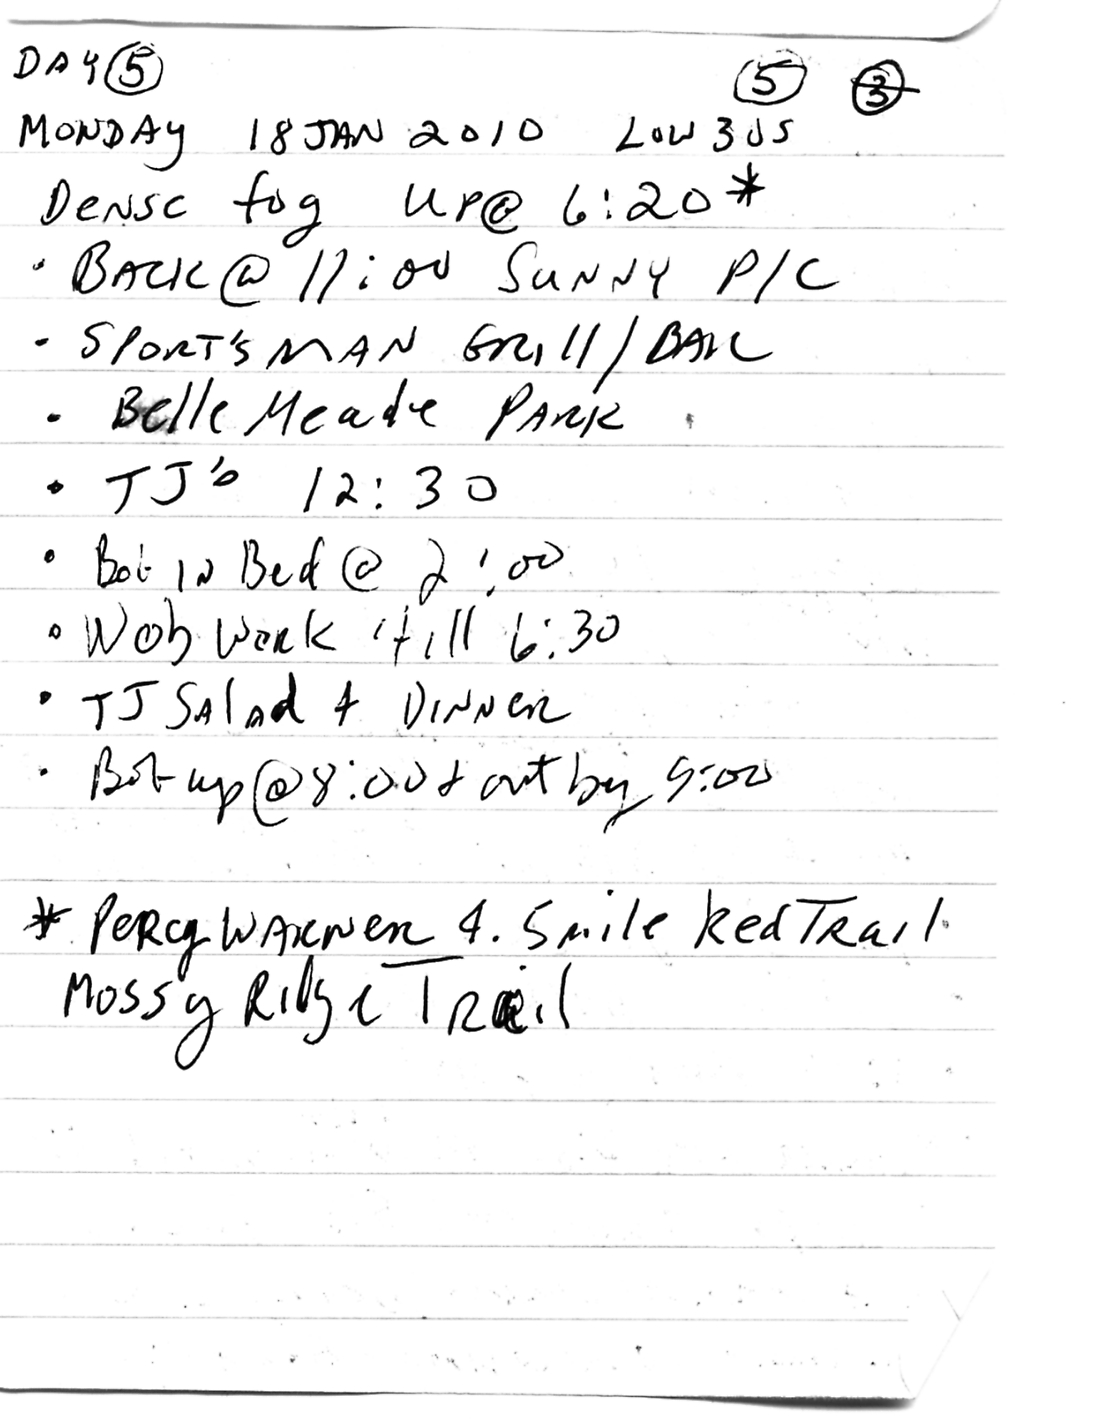 DAY 5 5 3
MONDAY 18 JAN 2010 LOW 30S
Dense fog UP@ 6:20*
• BACK @ 11:00 SUNNY P/C
• SPORT'SMAN GRill/BAR
• Belle Meade PARK
• TJ's 12:30
• Bob IN Bed @ 2:00
• Web Work 'till 6:30
• TJ SALad + DINNER
• Bob up @ 8:00 + out by 9:00
* PERCY WARNER 4.5 mile Red TRail
Mossy Ridge TRail